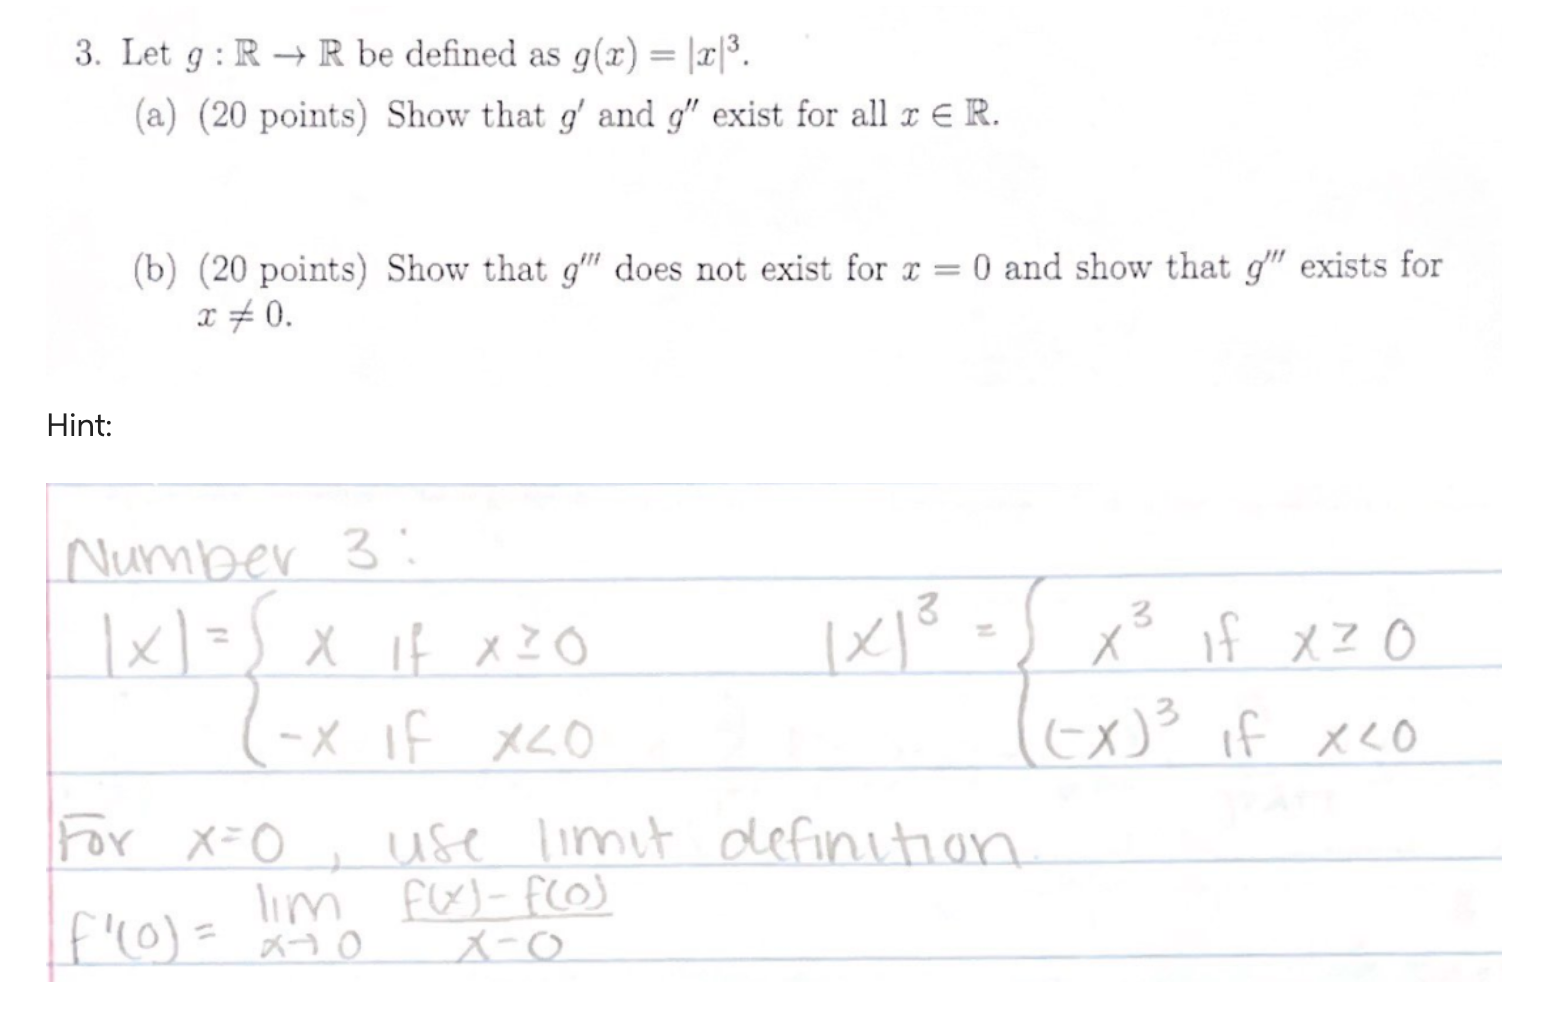 3. Let g : ℝ → ℝ be defined as g(x) = |x|³.
(a) (20 points) Show that g′ and g″ exist for all x ∈ ℝ.
(b) (20 points) Show that g‴ does not exist for x = 0 and show that g‴ exists for
x ≠ 0.
Hint:
Number 3:
|x| = { x if x ≥ 0 |x|³ = { x³ if x ≥ 0
-x if x < 0 (-x)³ if x < 0
For x=0, use limit definition.
f'(0) = lim x→0 f(x) - f(0) / x - 0